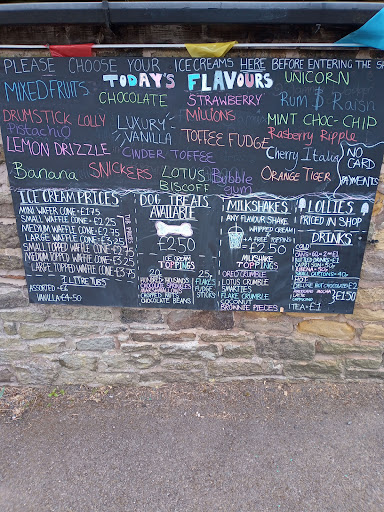 PLEASE CHOOSE YOUR ICECREAMS HERE BEFORE ENTERING THE
TODAY'S FLAVOURS
UNICORN
MIXED FRUITS
CHOCOLATE
STRAWBERRY
Rum $ Raisn
DRUMSTICK LOLLY
LUXURY VANILLA
MILLIONS
MINT CHOC-CHIP
Pistachio
TOFFEE FUDGE
Rasberry Ripple
LEMON DRIZZLE
CINDER TOFFEE
Cherry Italia
NO CARD PAYMENTS
Banana
SNICKERS
LOTUS BISCOFF
Bubble gum
ORANGE TIGER
ICE CREAM PRICES
MINI WAFER CONE = £1.75
SMALL WAFFLE CONE = £2.25
MEDIUM WAFFLE CONE = £2.75
LARGE WAFFLE CONE = £3.25
SMALL TOPPED WAFFLE CONE = £2.75
MEDIUM TOPPED WAFFLE CONE = £3.25
LARGE TOPPED WAFFLE CONE =
1 LITRE TUBS
ASSORTED = £6
VANILLA = £4.50
DOG TREATS AVAILABLE
£2.50
ICE CREAM TOPPINGS
HUNDRED THOUSANDS
CHOCOLATE SPRINKLES
MARSHMALLOWS
CHOPPED NUTS
CHOCOLATE BEANS
FLAKES
FUDGE STICKS
MILKSHAKES
ANY FLAVOUR SHAKE
WHIPPED CREAM
+ A FREE TOPPING
= £2.50
MILKSHAKE TOPPINGS
OREO CRUMBLE
LOTUS CRUMBLE
SMARTIES
FLAKE CRUMBLE
COCONUT
BROWNIE PIECES
LOLLIES
PRICED IN SHOP
DRINKS
COLD
HOT
£1.50
TEA = £1